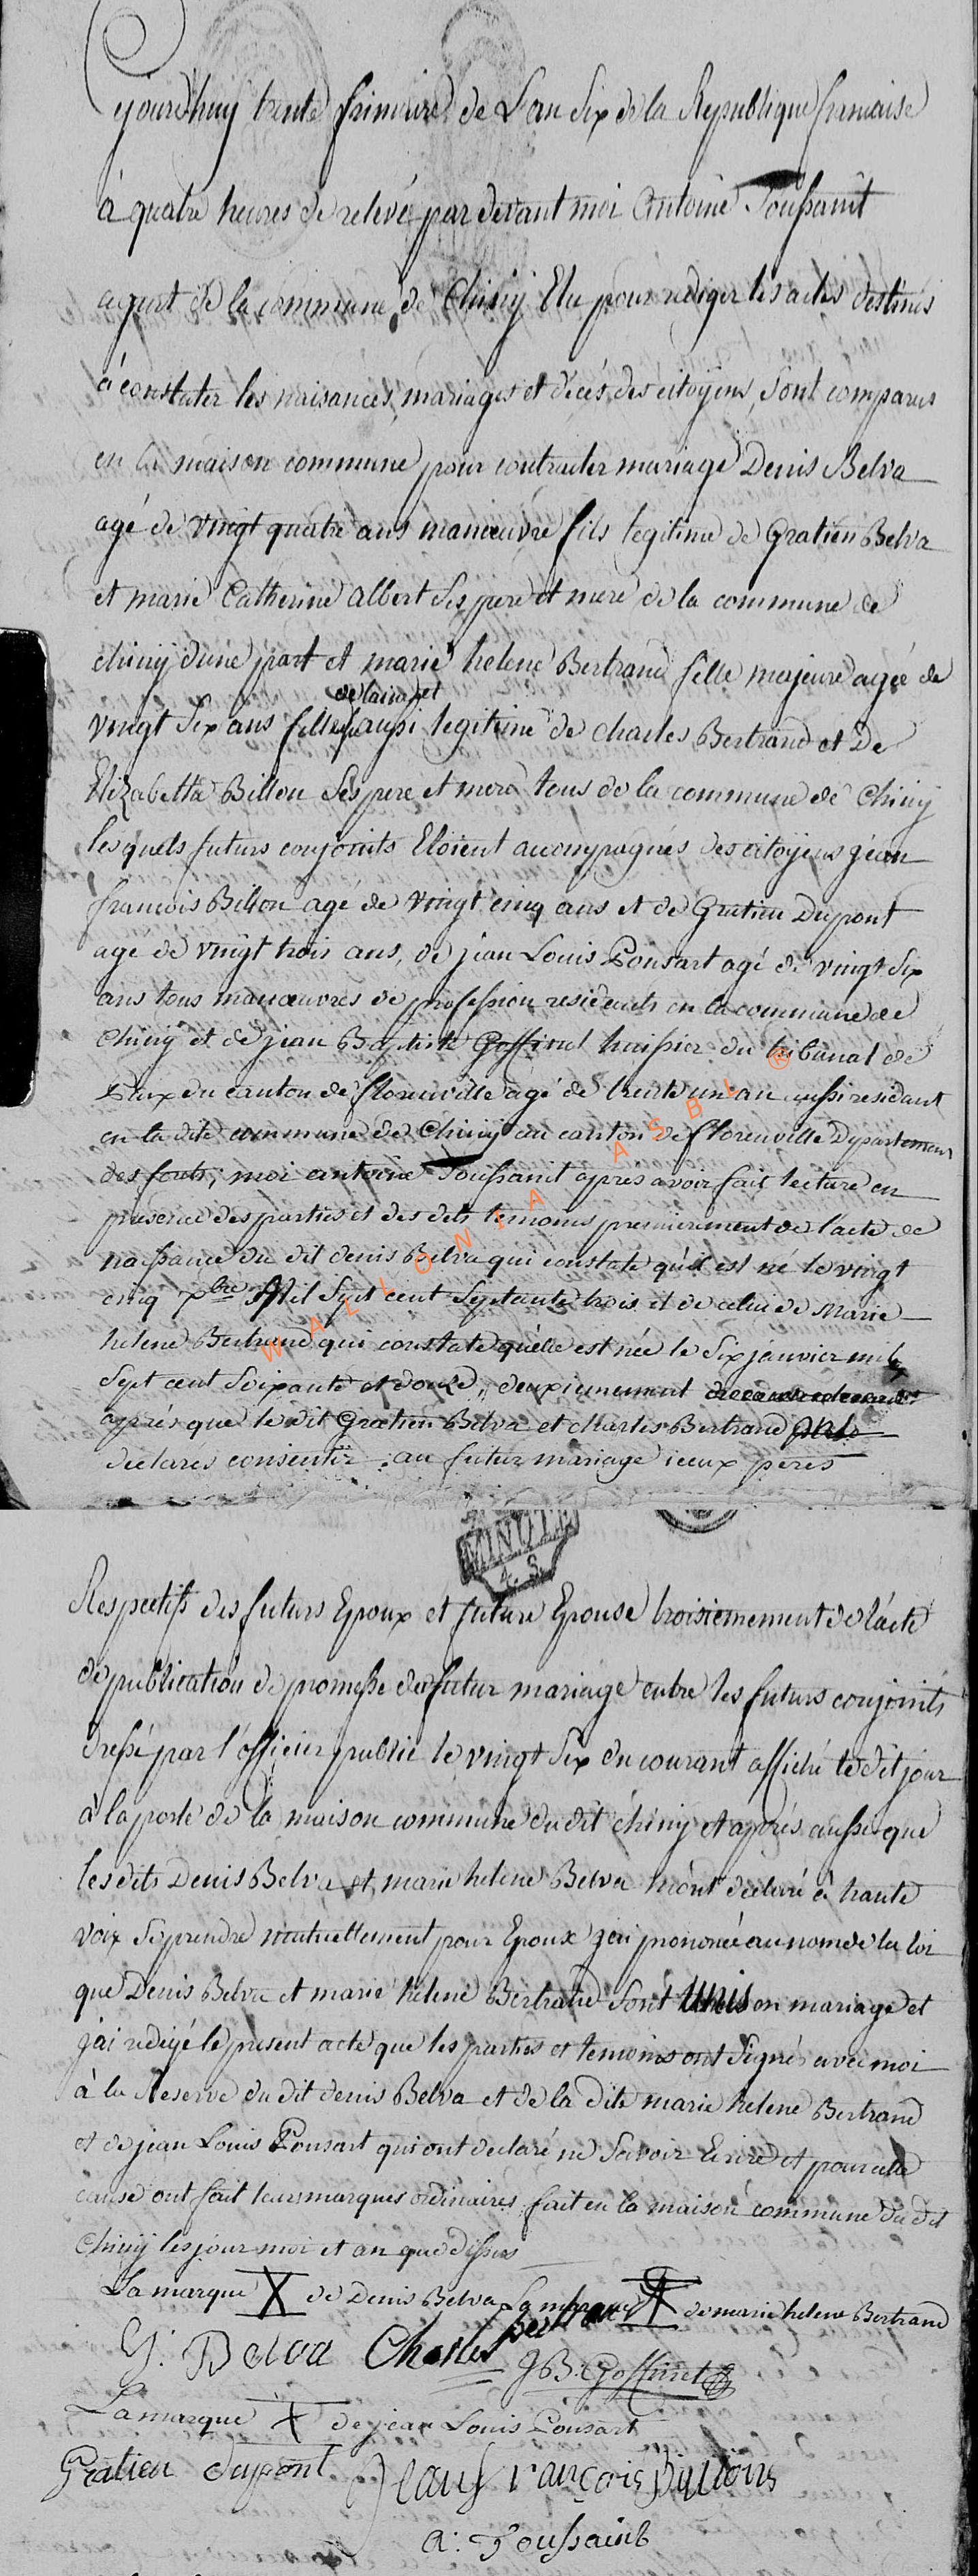 yourdhuy trente frimaire de L'an six de la Republique francaise
à quatre heures de relevé par devant moi Antoine Toussaint
agent de la commune de Chiny Elu pour rediger les actes destinés
à constater les naisances, mariages et décés des citoyens, sont comparus
en la maison commune pour contracter mariage Denis Belva
agé de vingt quatre ans manœuvre fils legitime de Gratien Belva
et marie Catherine albert ses pere et mere de la commune de
chiny d'une part et marie helene Bertrand fille majeure agée de
vingt six ans fille aussi legitime de charles Bertrand et De
Elizabetta Billon ses pere et mere tous de la commune de Chiny
lesquels futurs conjoints Etoient accompagnés des citoyens jéan
francois Billon agé de vingt cinq ans et de Gratien Dupont
agé de vingt trois ans, de jean Louis Ponsart agé de vingt six
ans tous manœuvres de profession residents en la commune de
Chiny et de jean Baptiste Goffinet huissier du tribunal de
Paix du canton de florenville agé de trente un an aussi residant
en la dite commune de Chiny au canton de florenville Departement
des forets, moi antoine Toussaint aprés avoir fait lecture en
presence des parties et des dits temoins premierement de l'acte de
naissance du dit denis Belva qui constate qu'il est né le vingt
cinq 7bre Mil Sept cent Septante trois et de celui de Marie
helene Bertrand qui constate qu'elle est née le six janvier mil
Sept cent Soixante et douze, deuxiemement
aprés que le dit Gratien Belva et charles Bertrand
declarés consentir au futur mariage iceux peres
MINUTE
Respectifs des futurs Epoux et future Epouse troisiemement de l'acte
de publication de promesse de futur mariage entre les futurs conjoints
dressé par l'officier public le vingt six du courant affiché le dit jour
à la porte de la maison commune du dit chiny et aprés aussi que
les dits Denis Belva et marie helene Belva m'ont declaré à haute
voix se prendre mutuellement pour Epoux jai prononcé au nom de la loi
que Denis Belva et marie helene Bertrand sont unis en mariage et
j'ai redigé le present acte que les parties et temoins ont Signés avec moi
à la Reserve du dit denis Belva et de la dite marie helene Bertrand
et de jean Louis Ponsart qui ont declaré ne Savoir Ecrire et pour cette
cause ont fait leurs marques ordinaires fait en la maison commune du dit
Chiny les jour moi et an que dessus
La marque X de Denis Belva La marque X de marie helene Bertrand
G. Belva Charles Bertrand J B. Goffinet
La marque X de jean Louis Ponsart
Gratien dupont Jean François Billons
a: Toussaint
WALLONIA ASBL ®